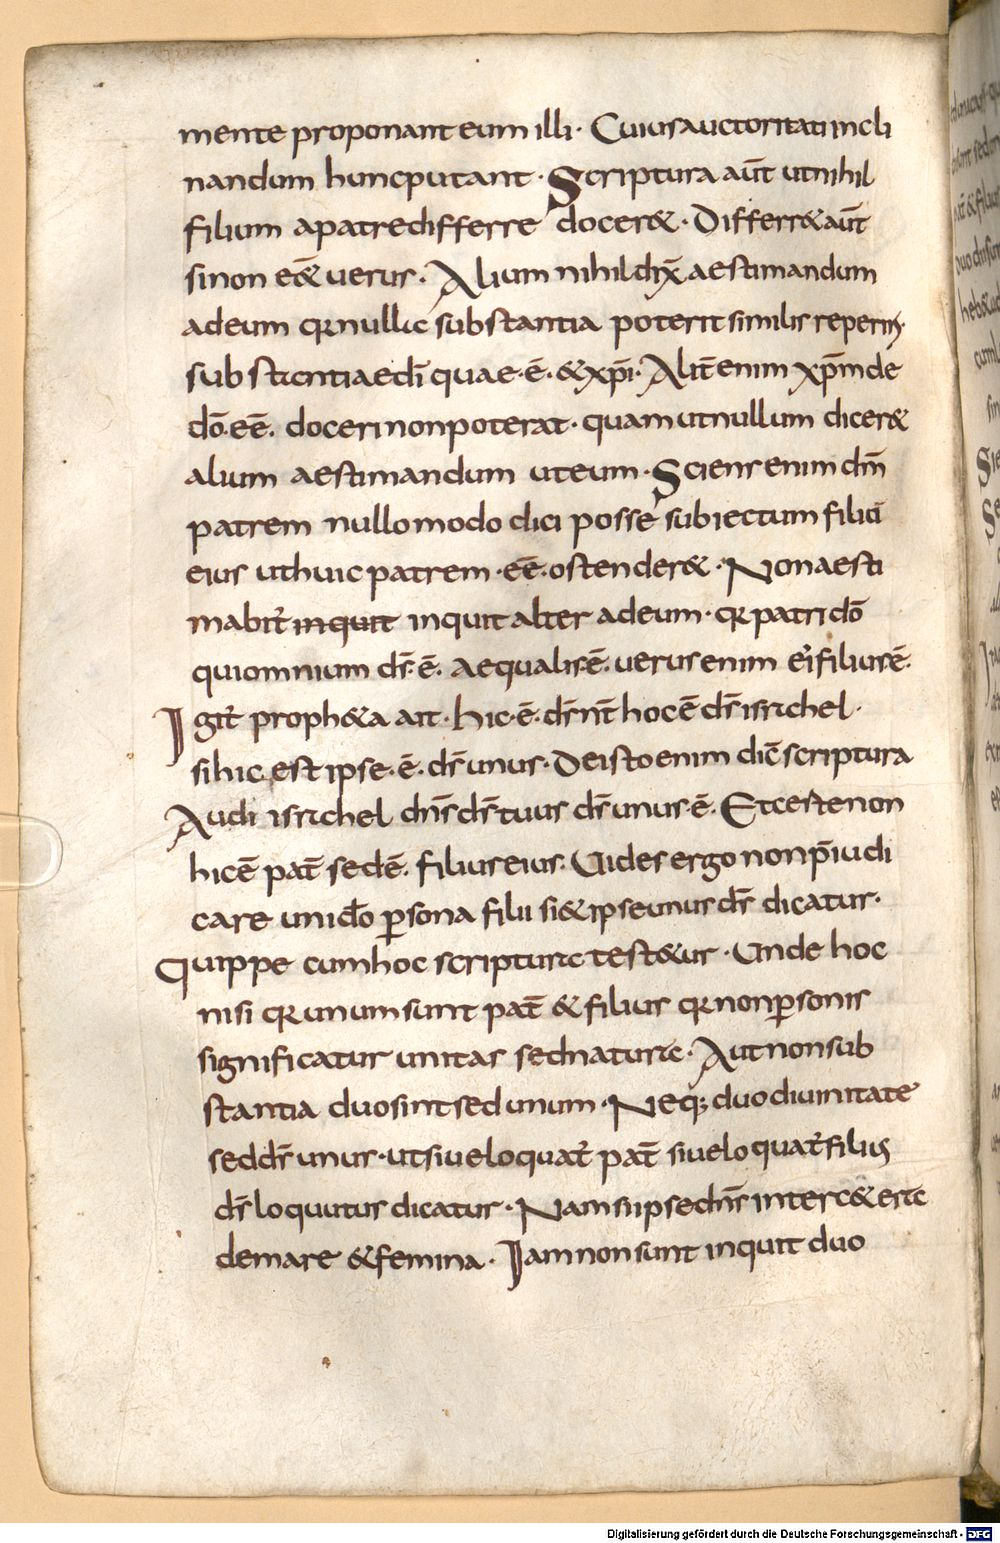 mente proponant eum illi · Cuius auctoritati incli
nandum hunc putant · Scriptura aut̄ ut nihil
filium a patre differre docer& · Differr& aut̄
si non eē& uerus · Alium nihil dix̄ aestimandum
ad eum qR nulla substantia poterit similis reperiri·
substantiae dī quae·ē· & xp̄i· Alit̄ enim xp̄m de
dō·eē· doceri non poterat · quam ut nullum dicer&
alium aestimandum ut eum · Sciens enim dm̄
patrem nullo modo dici posse subiectum filii
eius ut huic patrem ·eē· ostender& · Non aesti
mabit̄ inquit inquit alter ad eum · qR patri dō
qui omnium ds̄·ē· aequalis·ē· uerus enim ei filius ē·
Igit̄ proph&a ait · hic·ē· ds̄ nr̄ hoc ē ds̄ israhel ·
si hic est ipse·ē· ds̄ unus · De isto enim dic̄ scriptura
Audi israhel dn̄s ds̄ tuus ds̄ unus·ē· Et certe non
hic ē pat̄ sed ē· filius eius· Uides ergo non p̄iudi
care uni dō p̄sona filii si & ipse unus ds̄ dicatur·
Quippe cum hoc scriptura test&ur · Unde hoc
nisi qR unum sunt pat̄ & filius qR non p̄sonis
significatur unitas sed natura · Aut non sub
stantia duo sint sed unum · Neq; duo diuinitate
sed ds̄ unus · ut siue loquat̄ pat̄ siue loquat̄ filius
ds̄ loquutus dicatur · Nam si ipse dn̄s inter c&era
de mare & femina · Iam non sunt inquit duo
Digitalisierung gefördert durch die Deutsche Forschungsgemeinschaft - DFG